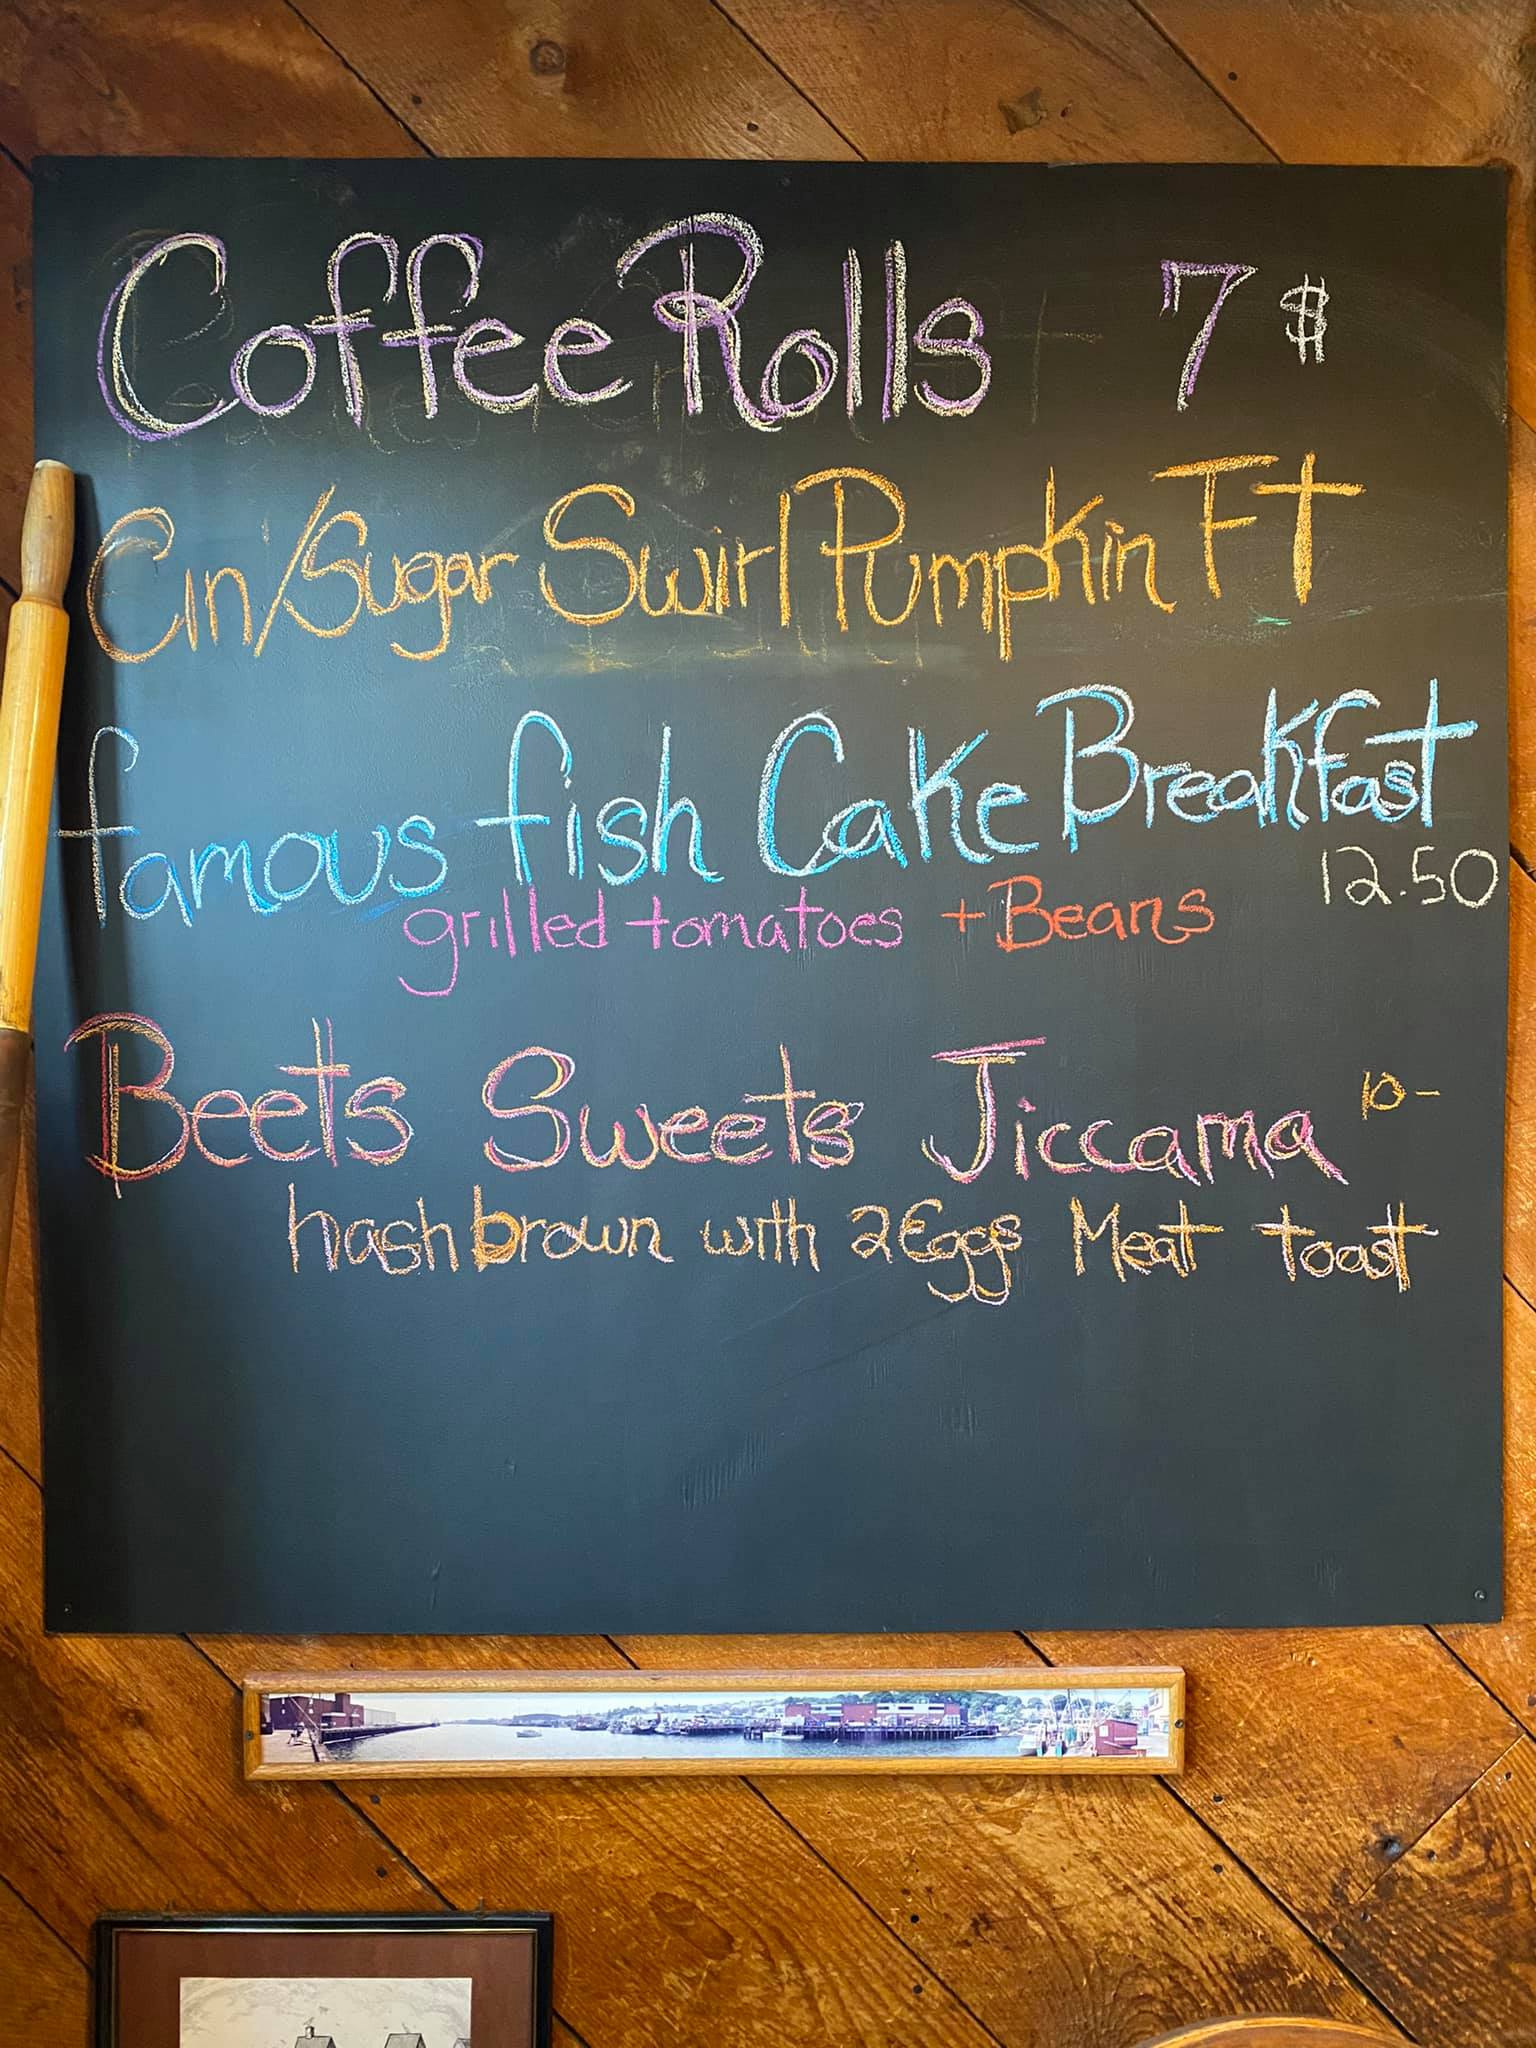 Coffee Rolls 7 $
Cin/Sugar Swirl Pumpkin FT
famous fish Cake Breakfast
12.50
grilled tomatoes + Beans
Beets Sweets Jiccama 10-
hashbrown with 2 Eggs Meat toast